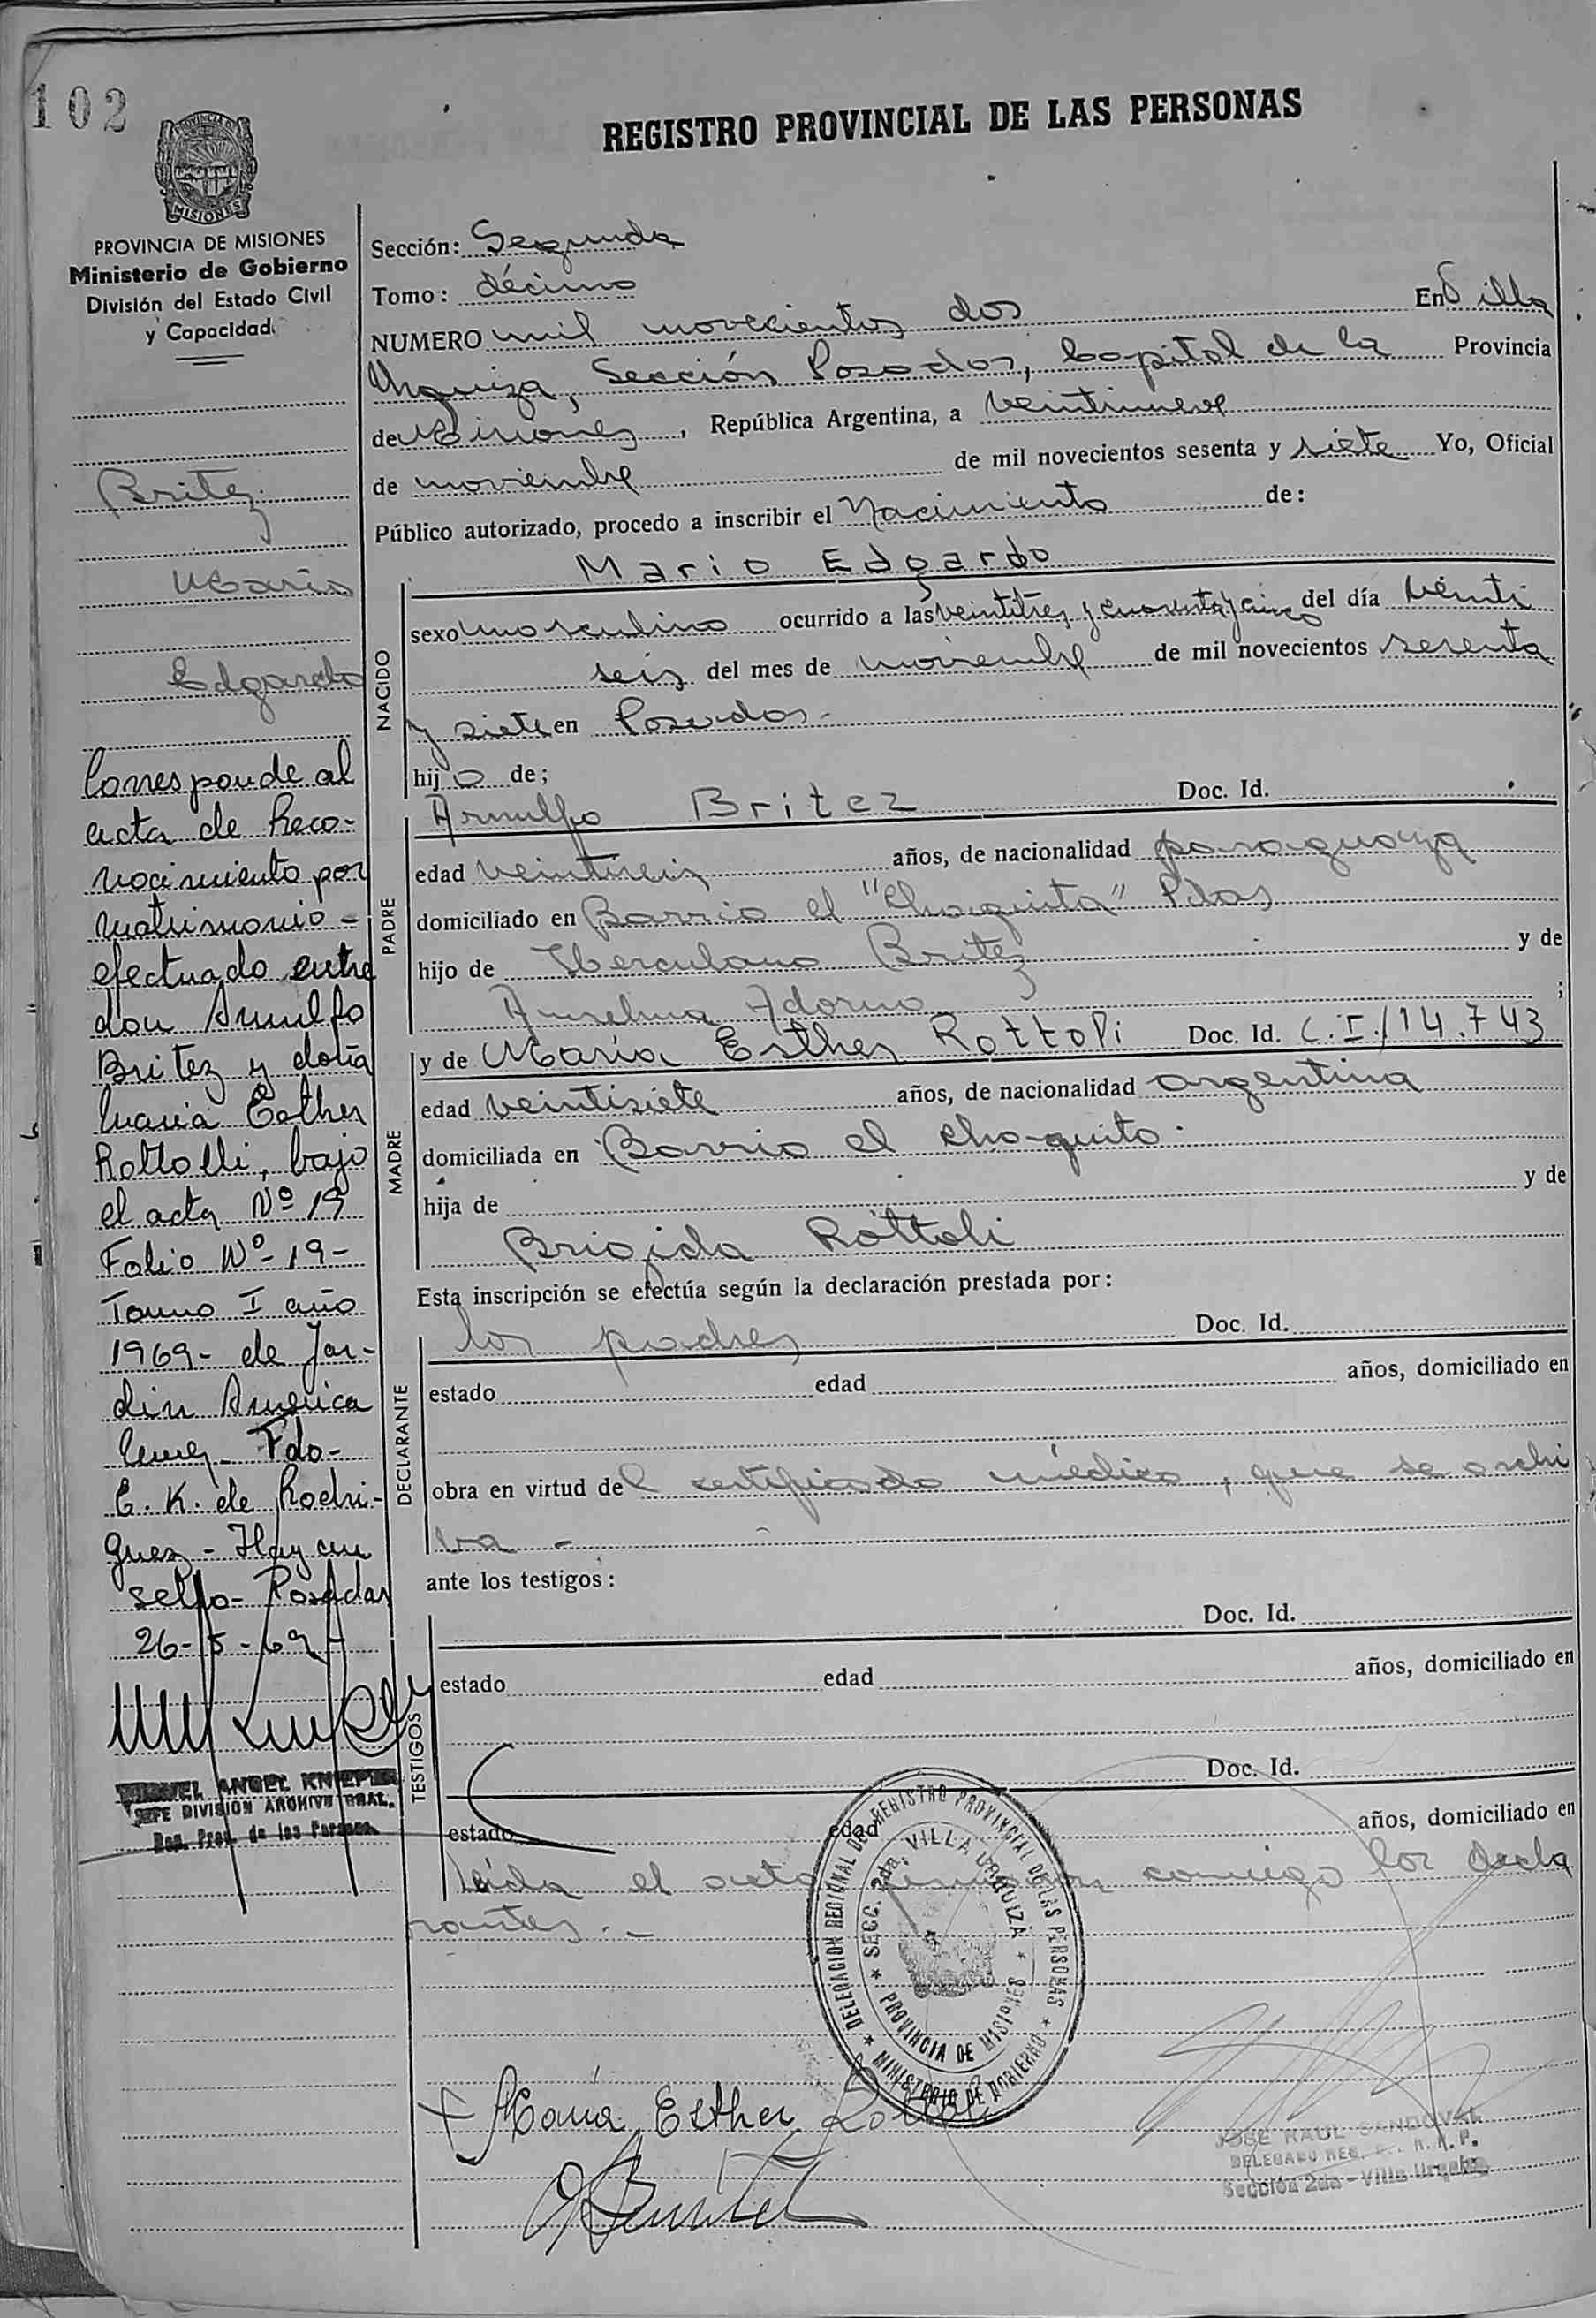 102
REGISTRO PROVINCIAL DE LAS PERSONAS
PROVINCIA DE MISIONES
Ministerio de Gobierno
División del Estado Civil
y Capacidad
Britez
Mario
Edgardo
Corresponde al
acta de Reco-
nocimiento por
matrimonio -
efectuado entre
don Arnulfo
Britez y doña
María Esther
Rottolli, bajo
el acta Nº 19
Folio Nº 19-
Tomo I año
1969- de Jar-
din America
Fdo-
E. K. de Rodri-
guez - Hay un
sello- Posadas
26-5-69-
MIGUEL ANGEL
JEFE DIVISION ARCHIVO GRAL.
Reg. Prov. de las Personas
Sección: Segunda
Tomo: décimo
NUMERO mil novecientos dos En Villa
Urquiza, Sección Posadas, Capital de la Provincia
de Misiones, República Argentina, a veintinueve
de noviembre de mil novecientos sesenta y siete Yo, Oficial
Público autorizado, procedo a inscribir el Nacimiento de:
Mario Edgardo
NACIDO
sexo masculino ocurrido a las veintitres y cuarenta y cinco del día veinti
seis del mes de noviembre de mil novecientos sesenta
y siete en Posadas-
hijo de;
PADRE
Arnulfo Britez Doc. Id.
edad veintiseis años, de nacionalidad paraguaya
domiciliado en Barrio el "Chaquita" Pdas
hijo de Herculano Britez y de
Anselma Adorno ;
MADRE
y de María Esther Rottoli Doc. Id. C.I./14.743
edad veintisiete años, de nacionalidad argentina
domiciliada en Barrio el Chaquito.
hija de y de
Brigida Rottoli
Esta inscripción se efectúa según la declaración prestada por:
DECLARANTE
los padres Doc. Id.
estado edad años, domiciliado en
obra en virtud del certificado médico, que se archi
va -
ante los testigos:
TESTIGOS
Doc. Id.
estado edad años, domiciliado en
Doc. Id.
estado edad años, domiciliado en
Leida el acta firman conmigo los decla
rantes.-
DELEGACION REGIONAL DEL REGISTRO PROVINCIAL DE LAS PERSONAS * MINISTERIO DE GOBIERNO *
SECC. 2da. VILLA URQUIZA * PROVINCIA DE MISIONES *
María Esther Rottoli
JOSE RAUL SANDOVAL
DELEGADO REG. R. P.
Sección 2da - Villa Urquiza